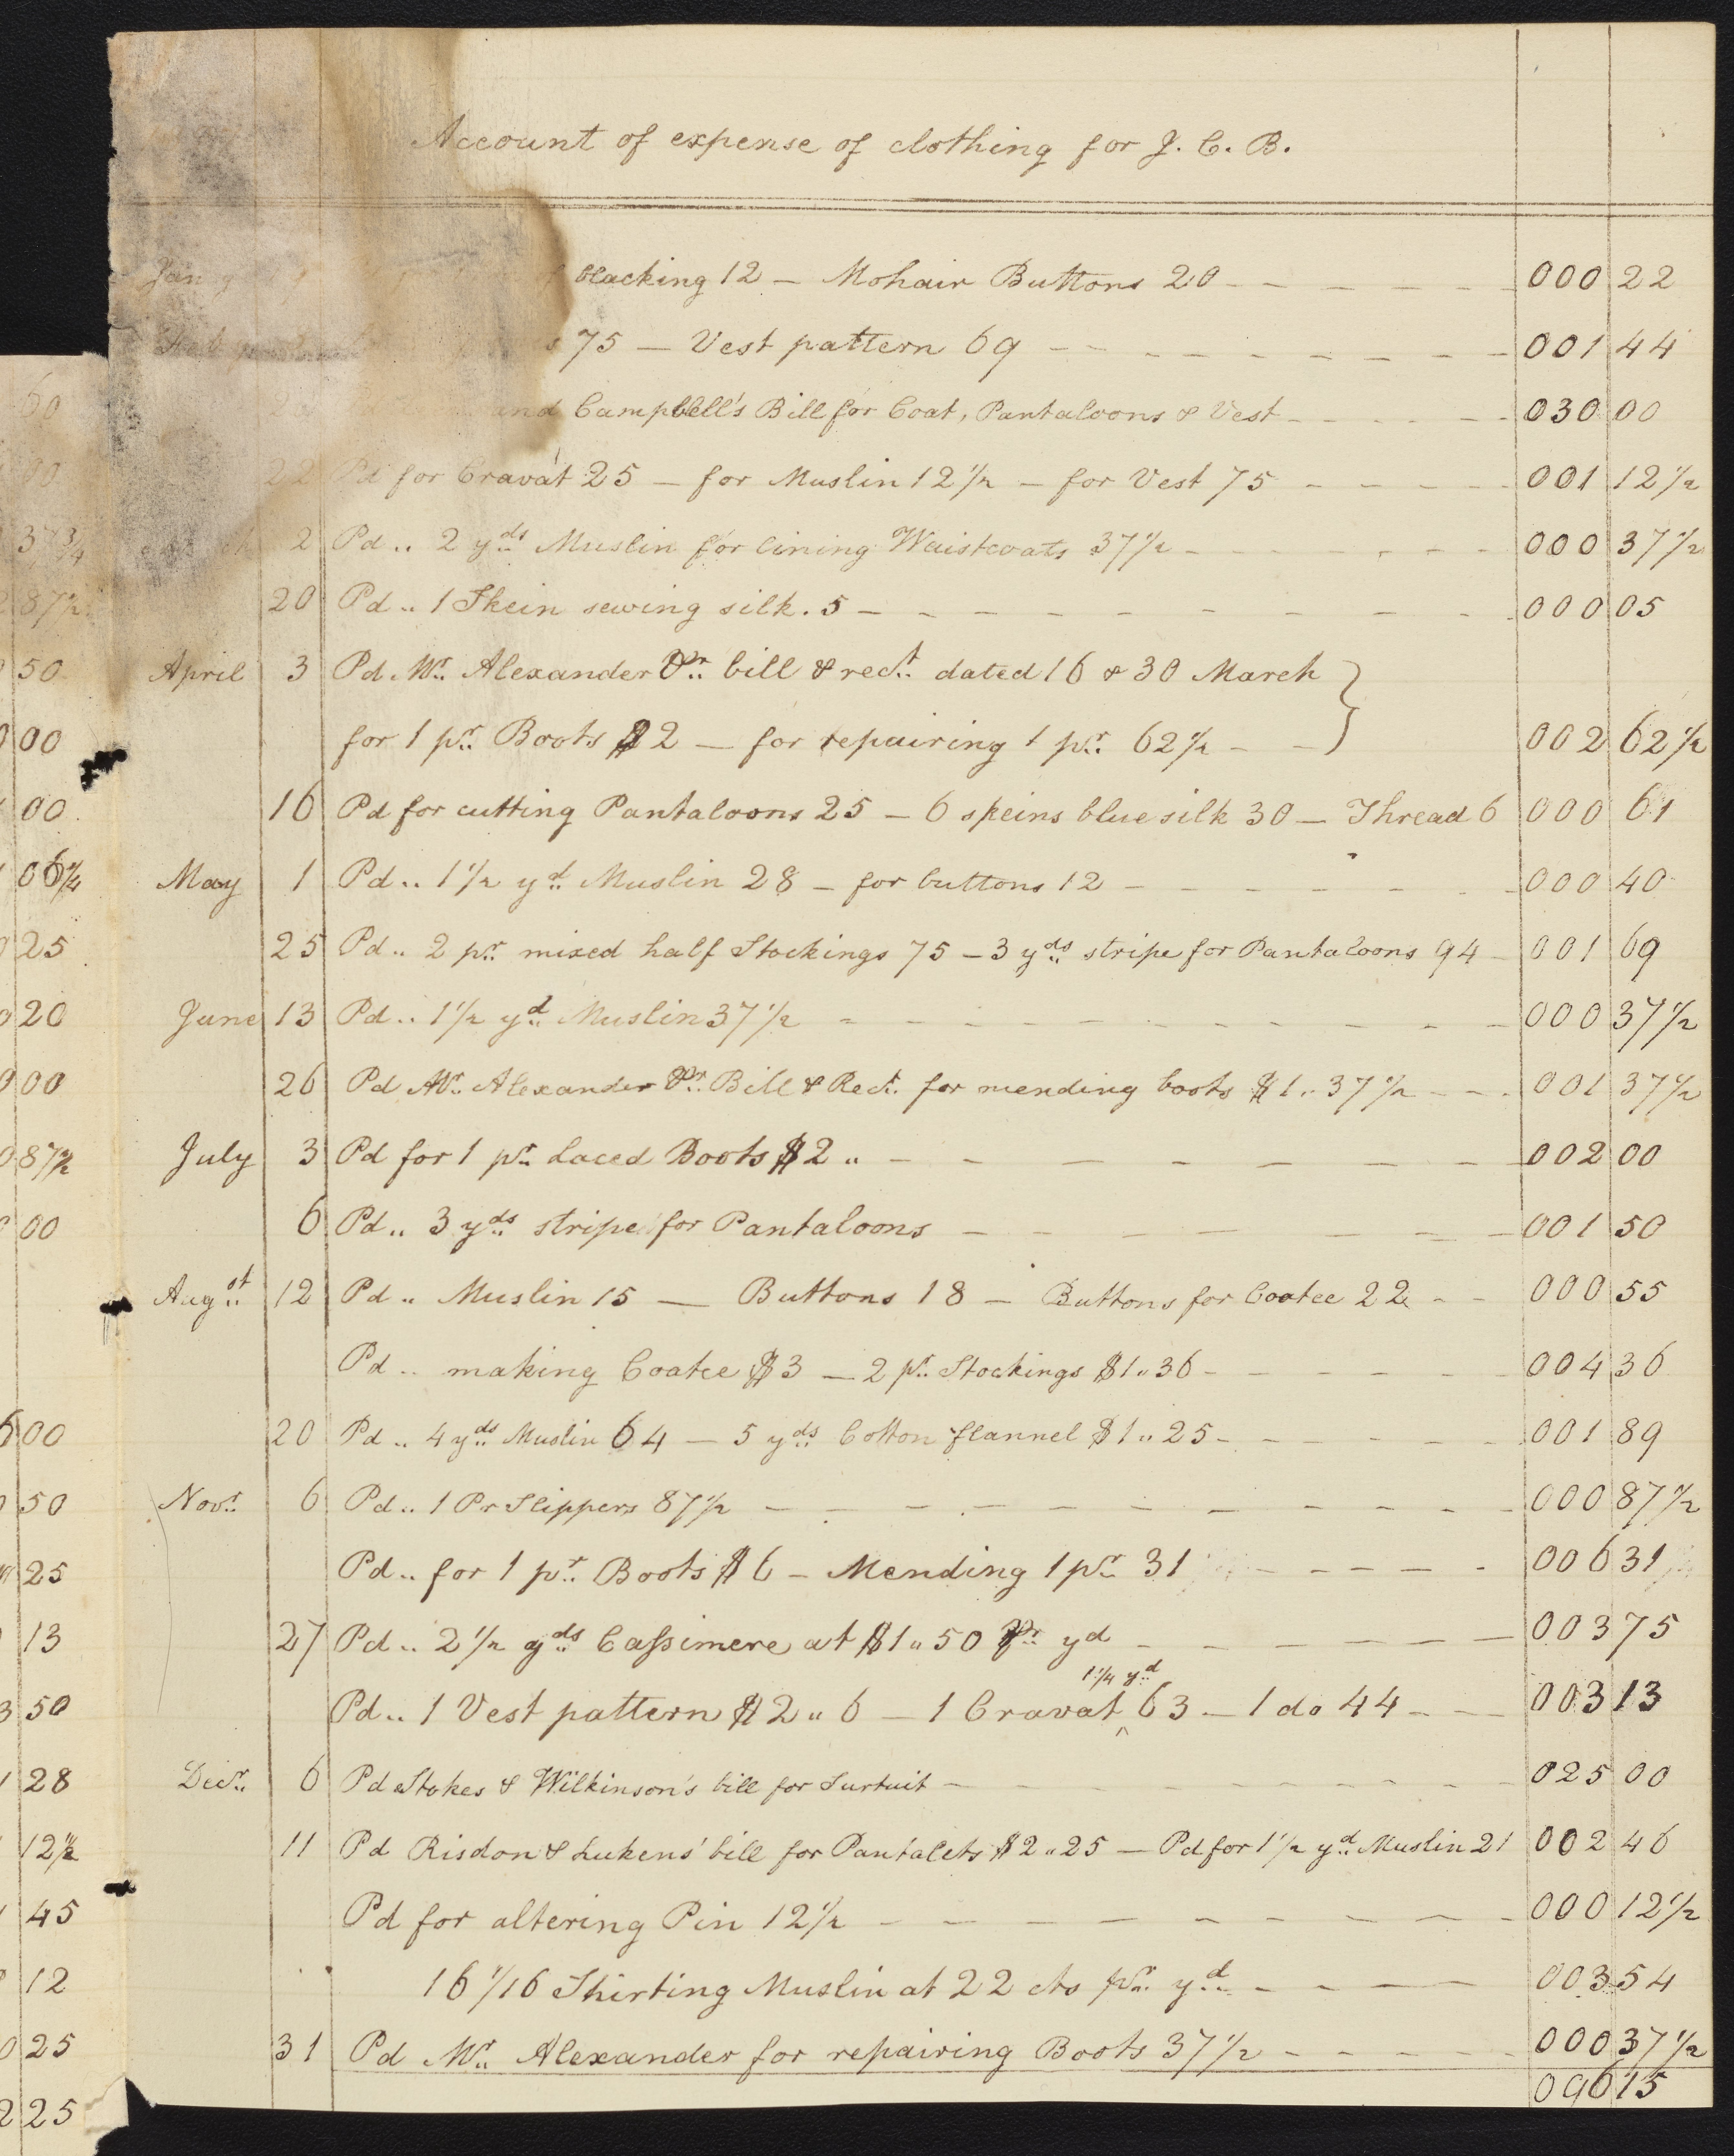 Account of expense of clothing for J. C. B.
blacking 12 — Mohair Buttons 20 000 22
75 — Vest pattern 69 001 44
and Campbell's Bill for Coat, Pantaloons & Vest 030 00
22 Pd for Cravat 25 — for Muslin 12½ — for Vest 75 001 12½
2 Pd .. 2 yds Muslin for lining Waistcoats 37½ 000 37½
20 Pd .. 1 Skein sewing silk . 5 000 05
April 3 Pd Mr. Alexander Pr. bill & rect. dated 16 & 30 March
for 1 pr. Boots $2 — for repairing 1 pr. 62½ 002 62½
16 Pd for cutting Pantaloons 25 — 6 skeins blue silk 30 — Thread 6 000 61
May 1 Pd .. 1½ yd. Muslin 28 — for buttons 12 000 40
25 Pd .. 2 pr. mixed half Stockings 75 — 3 yds stripe for Pantaloons 94 001 69
June 13 Pd .. 1½ yd. Muslin 37½ 000 37½
26 Pd Mr. Alexander Pr. Bill & Rect. for mending boots $1 .. 37½ 001 37½
July 3 Pd for 1 pr. Laced Boots $2 .. 002 00
6 Pd .. 3 yds stripe for Pantaloons 001 50
Augst. 12 Pd .. Muslin 15 — Buttons 18 — Buttons for Coatee 22 000 55
Pd .. making Coatee $3 — 2 pr. Stockings $1 .. 36 004 36
20 Pd .. 4 yds Muslin 64 — 5 yds Cotton flannel $1 .. 25 001 89
Novr. 6 Pd .. 1 Pr Slippers 87½ 000 87½
Pd .. for 1 pr. Boots $6 — Mending 1 pr. 31 006 31
27 Pd .. 2½ yds Cassimere at $1 .. 50 Pr. yd 003 75
Pd .. 1 Vest pattern $2 .. 6 — 1 Cravat ^ 1¼ yd. 63 — 1 do 44 003 13
Decr. 6 Pd Stokes & Wilkinson's bill for Surtuit 025 00
11 Pd Risdon & Lukens' bill for Pantalets $2 .. 25 — Pd for 1½ yd. Muslin 21 002 46
Pd for altering Pin 12½ 000 12½
16 1/16 Shirting Muslin at 22 cts pr. yd. 003 54
31 Pd Mr. Alexander for repairing Boots 37½ 000 37½
096 15
60
37¾
87½
50
00
00
06¼
25
20
00
87½
00
00
50
25
13
50
28
12½
45
12
25
25